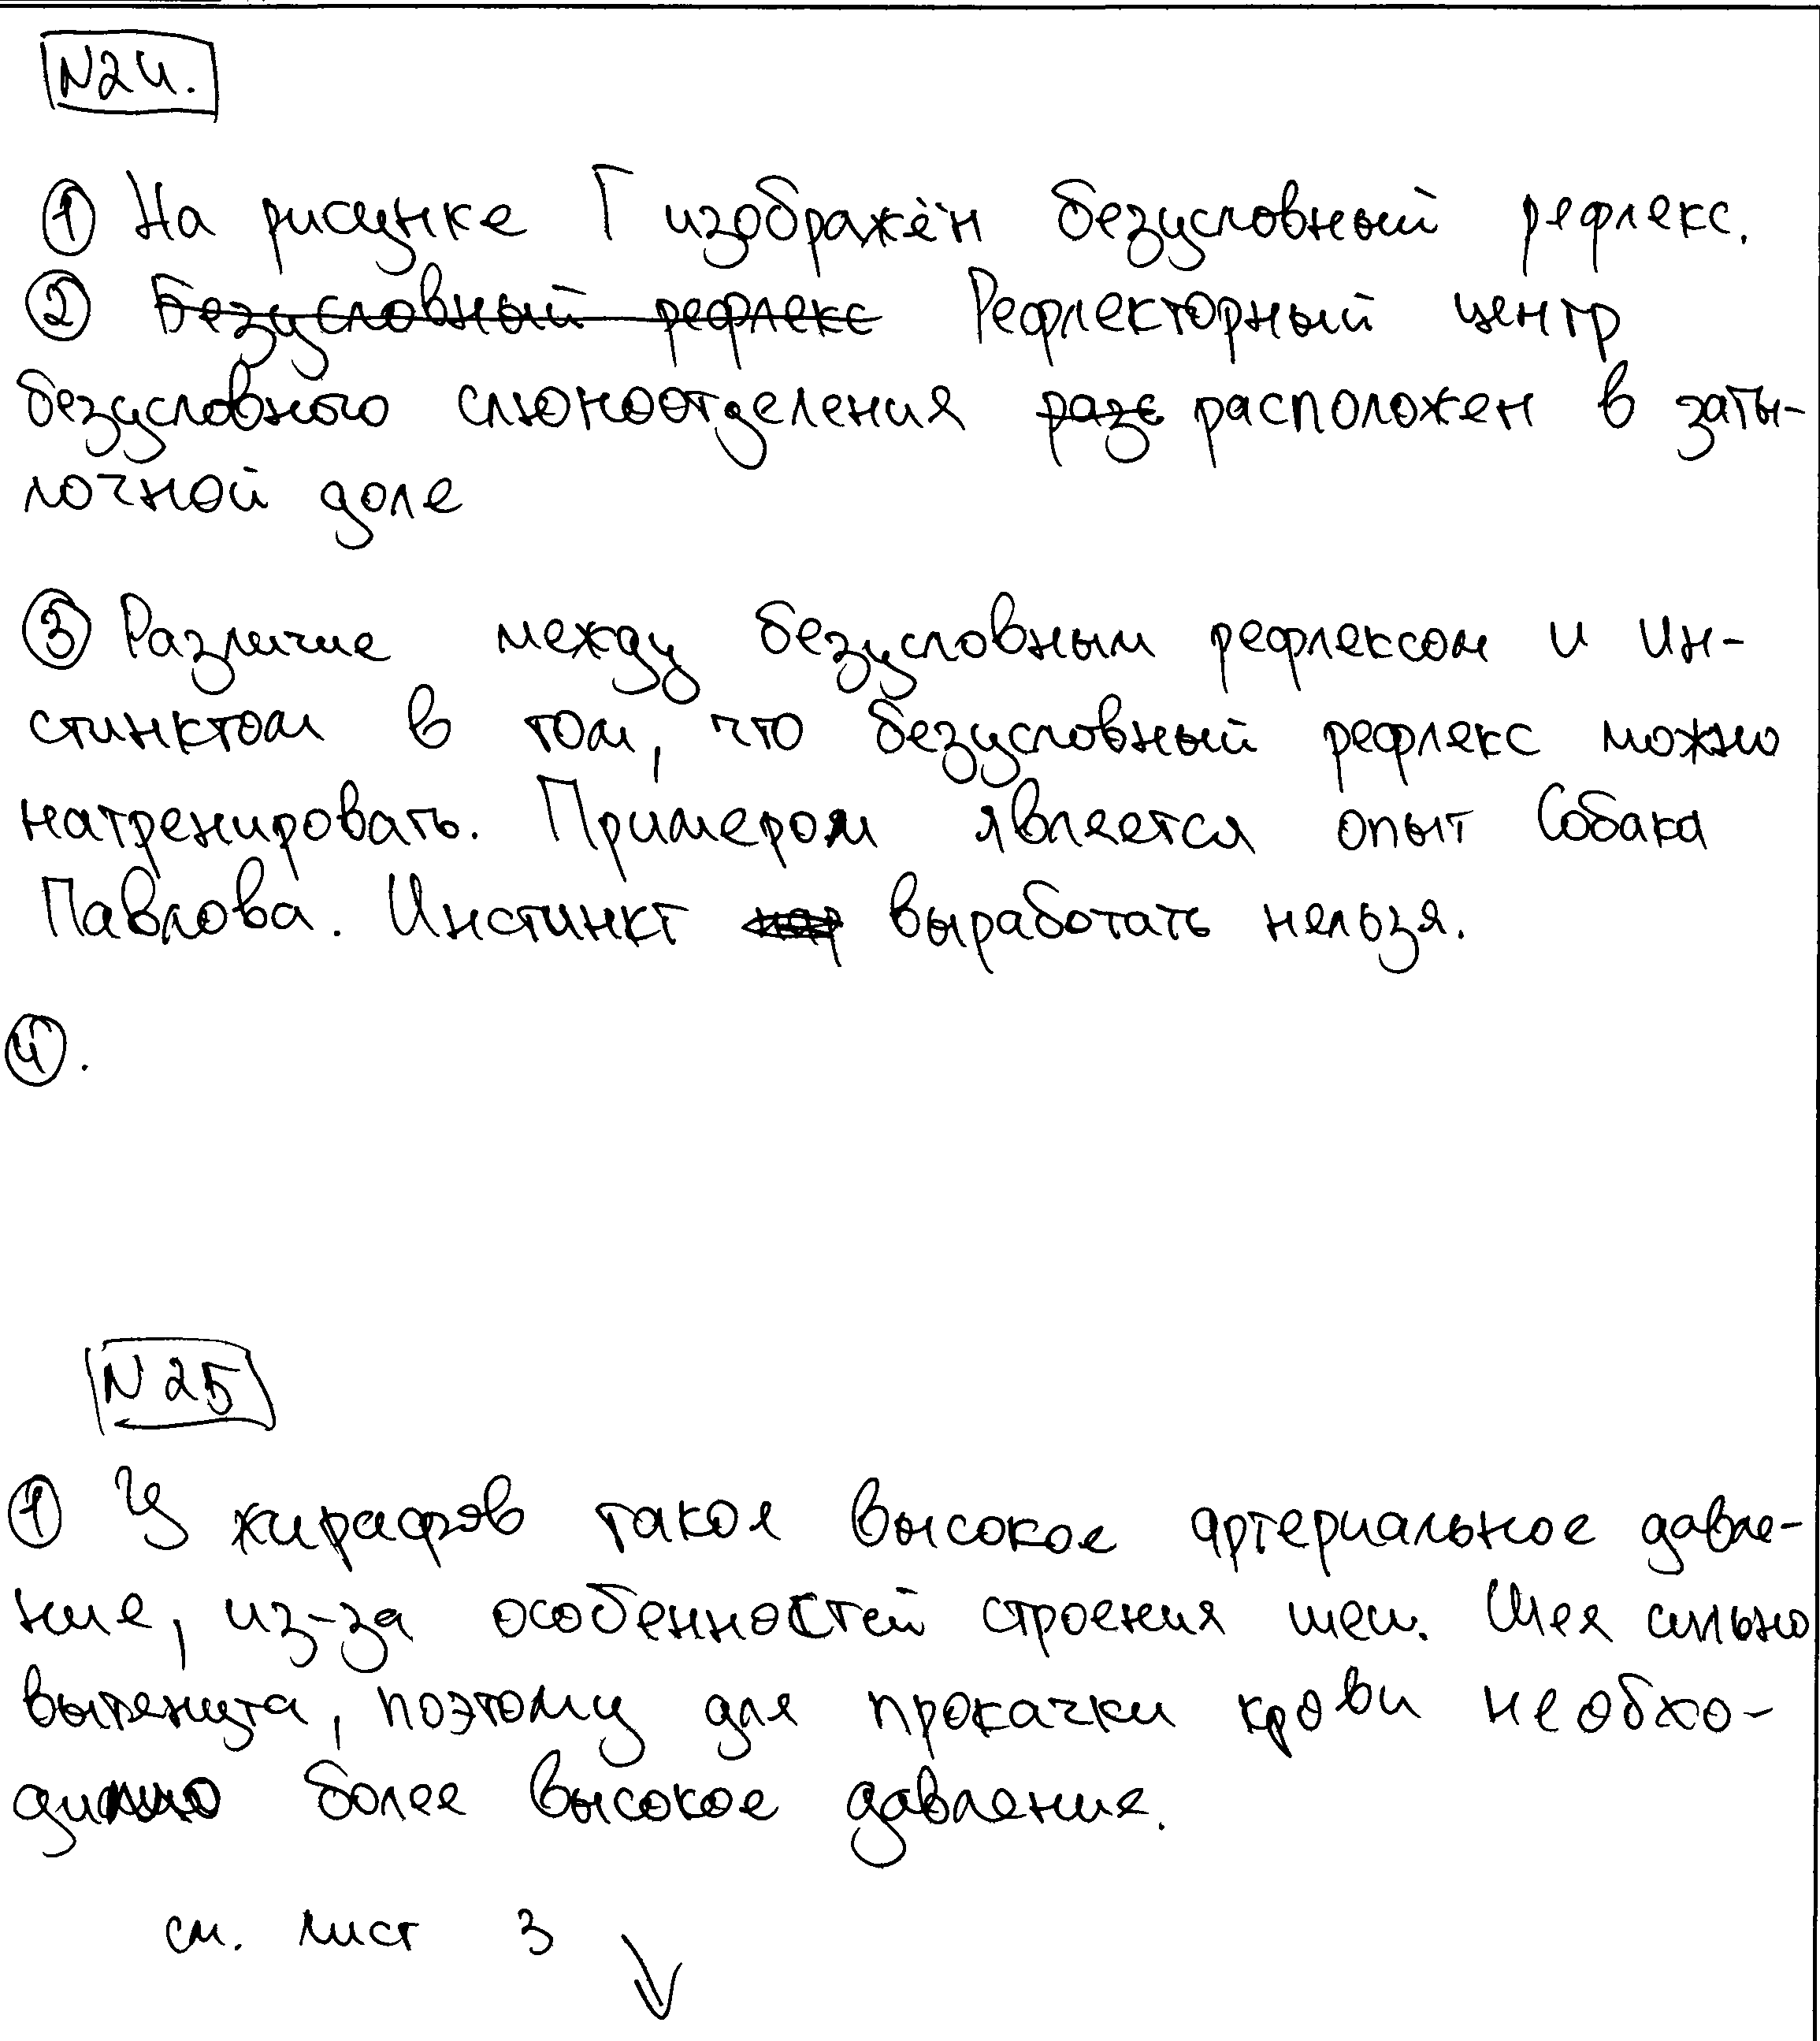 N24.
① На рисунке Г изображён безусловный рефлекс.
② Безусловный рефлекс Рефлекторный центр
безусловного слюноотделения разс расположен в заты-
лочной доле
③ Различие между безусловным рефлексом и ин-
стинктом в том, что безусловный рефлекс можно
натренировать. Примером является опыт Собака
Павлова. Инстинкт выработать нельзя.
④.
N25
① У жирафов такое высокое артериальное давле-
ние, из-за особенностей строения шеи. Шея сильно
вытенута, поэтому для прокачки крови необхо-
димо более высокое давление.
см. лист 3